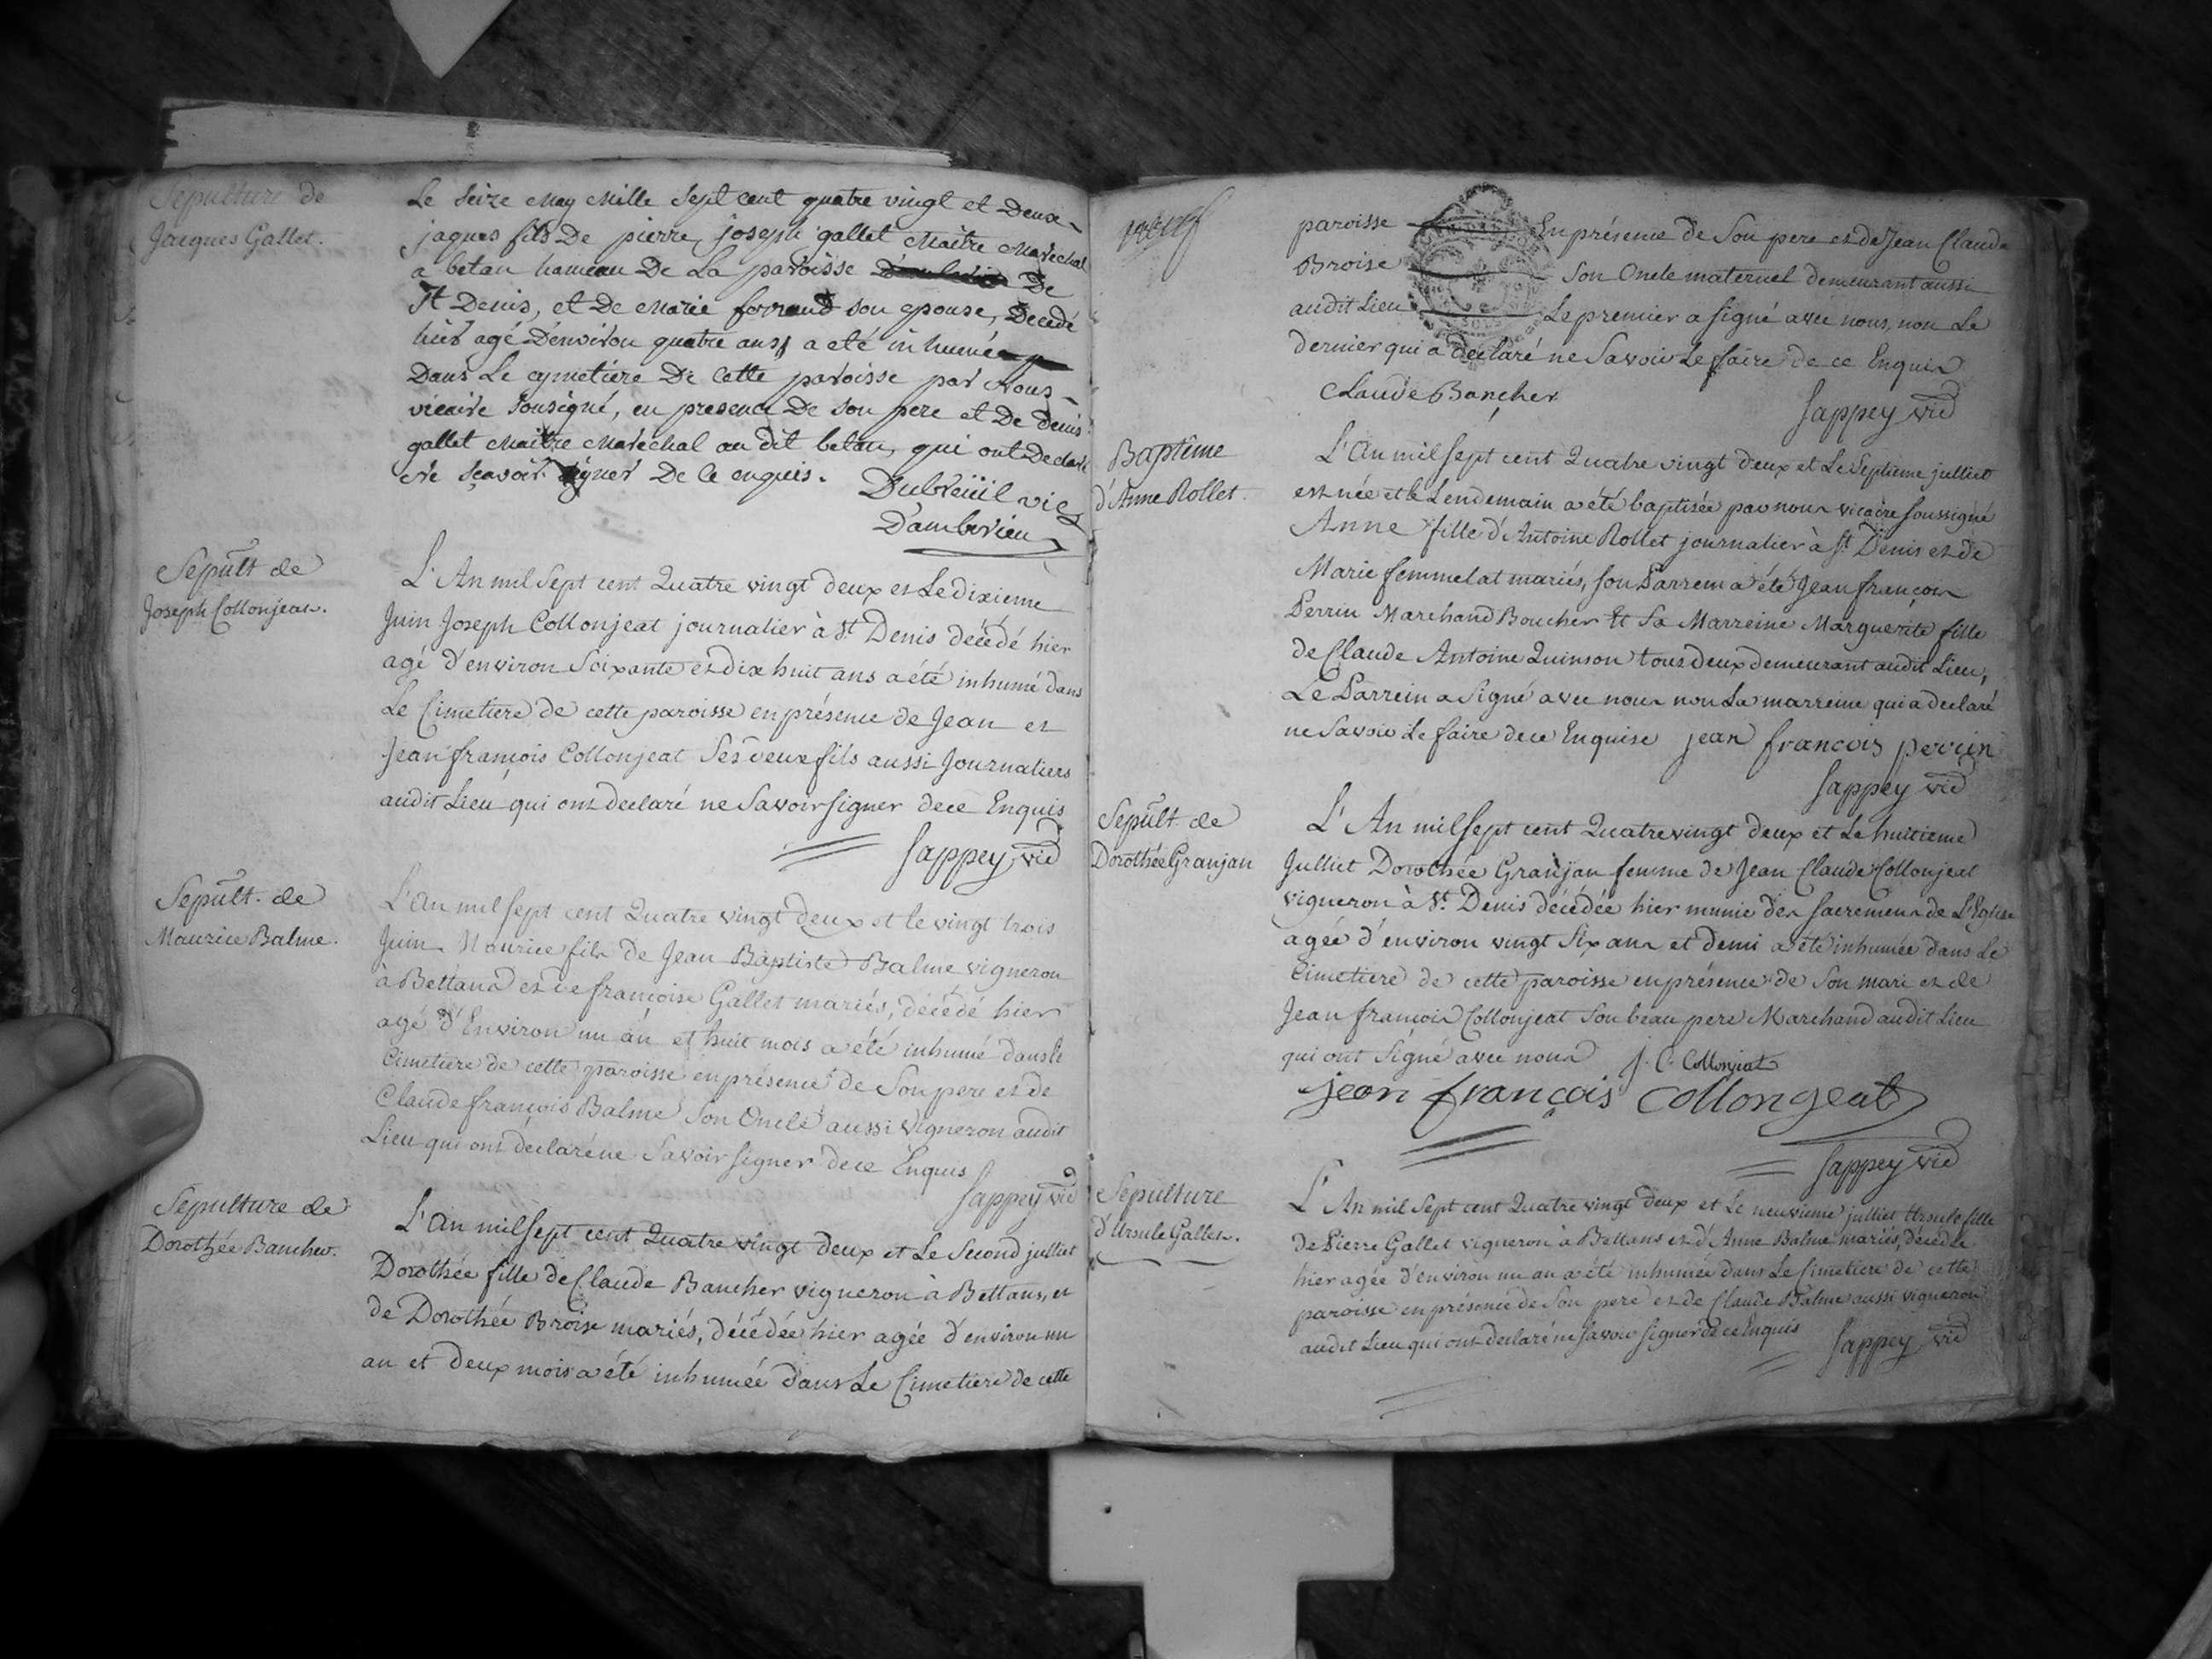 Sepulture de
Jacques Gallet.
Le seize may mille sept cent quatre vingt et deux
jaques fils De pierre, joseph gallet maitre marechal
a betan hameau De La paroisse De
St Denis, et De marie ferrand son epouse, Decedé
hier agé D'environ quatre ans, a eté inhumé
Dans Le cymetiere De cette paroisse par Nous
vicaire sousigné, en presence De son pere et De denis
gallet maitre marechal au dit betan, qui ont Declaré
ne sçavoir signer De ce enquis.
Dubreüil vic
D'amberieu
Sepult de
Joseph Collonjeat.
L'An mil sept cent Quatre vingt deux et Le dixieme
Juin Joseph Collonjeat journalier à St Denis décédé hier
agé d'environ Soixante et dix huit ans a été inhumé dans
Le Cimetiere de cette paroisse en présence de Jean et
Jean françois Collonjeat Ses deux fils aussi Journaliers
audit Lieu qui ont declaré ne Savoir signer de ce Enquis
Sappey vic
Sepult. de
Maurice Balme.
L'An mil sept cent Quatre vingt deux et le vingt trois
Juin Maurice fils de Jean Baptiste Balme vigneron
à Bettans et de françoise Gallet mariés, décédé hier
agé d'Environ un an et huit mois a été inhumé dans le
Cimetiere de cette paroisse en présence de Son pere et de
Claude françois Balme Son Oncle aussi vigneron audit
Lieu qui ont déclaré ne Savoir signer de ce Enquis
Sappey vic
Sepulture de
Dorothée Bancher.
L'An mil sept cent Quatre vingt deux et Le Second julliet
Dorothée fille de Claude Bancher vigneron à Bettans, et
de Dorothée Broise mariés, décédée hier agée d'environ un
an et deux mois a été inhumée dans Le Cimetiere de cette
paroisse En présence de Son pere et de Jean Claude
Broise Son Oncle maternel demeurant aussi
audit Lieu Le premier a signé avec nous, non Le
dernier qui a déclaré ne Savoir Le faire de ce Enquis
Claude Bancher
Sappey vic
Baptême
d'Anne Rollet.
L'An mil sept cent Quatre vingt deux et Le Septieme julliet
est née et le Lendemain a été baptisée par nous vicaire soussigné
Anne fille d'Antoine Rollet journalier à St Denis et de
Marie femmelat mariés, son Parrein a été Jean françois
Perrin Marchand Boucher et Sa Marreine Marguerite fille
de Claude Antoine Quinson tous deux demeurant audit Lieu,
Le Parrein a Signé avec nous non La marreine qui a declaré
ne Savoir Le faire de ce Enquise jean francois perrin
Sappey vic
Sepult. de
Dorothée Granjan
L'An mil sept cent Quatre vingt deux et Le huitieme
Julliet Dorothée Granjan femme de Jean Claude Collonjeat
vigneron à St. Denis décédée hier munie des sacremens de L'Eglise
agée d'environ vingt six ans et demi a été inhumée dans Le
Cimetiere de cette paroisse en présence de Son mari et de
Jean françois Collonjeat Son beau pere Marchand audit Lieu
qui ont Signé avec nous J. C. Collonjeat
jean françois Collongeat
Sappey vic
Sepulture
d'Ursule Gallet.
L'An mil sept cent Quatre vingt deux et Le neuvieme julliet Ursule fille
de Pierre Gallet vigneron à Bettans et d'Anne Balme mariés, décédée
hier agée d'environ un an a été inhumée dans Le Cimetiere de cette
paroisse en présence de Son pere et de Claude Balme aussi vigneron
audit Lieu qui ont declaré ne Savoir signer de ce Enquis
Sappey vic